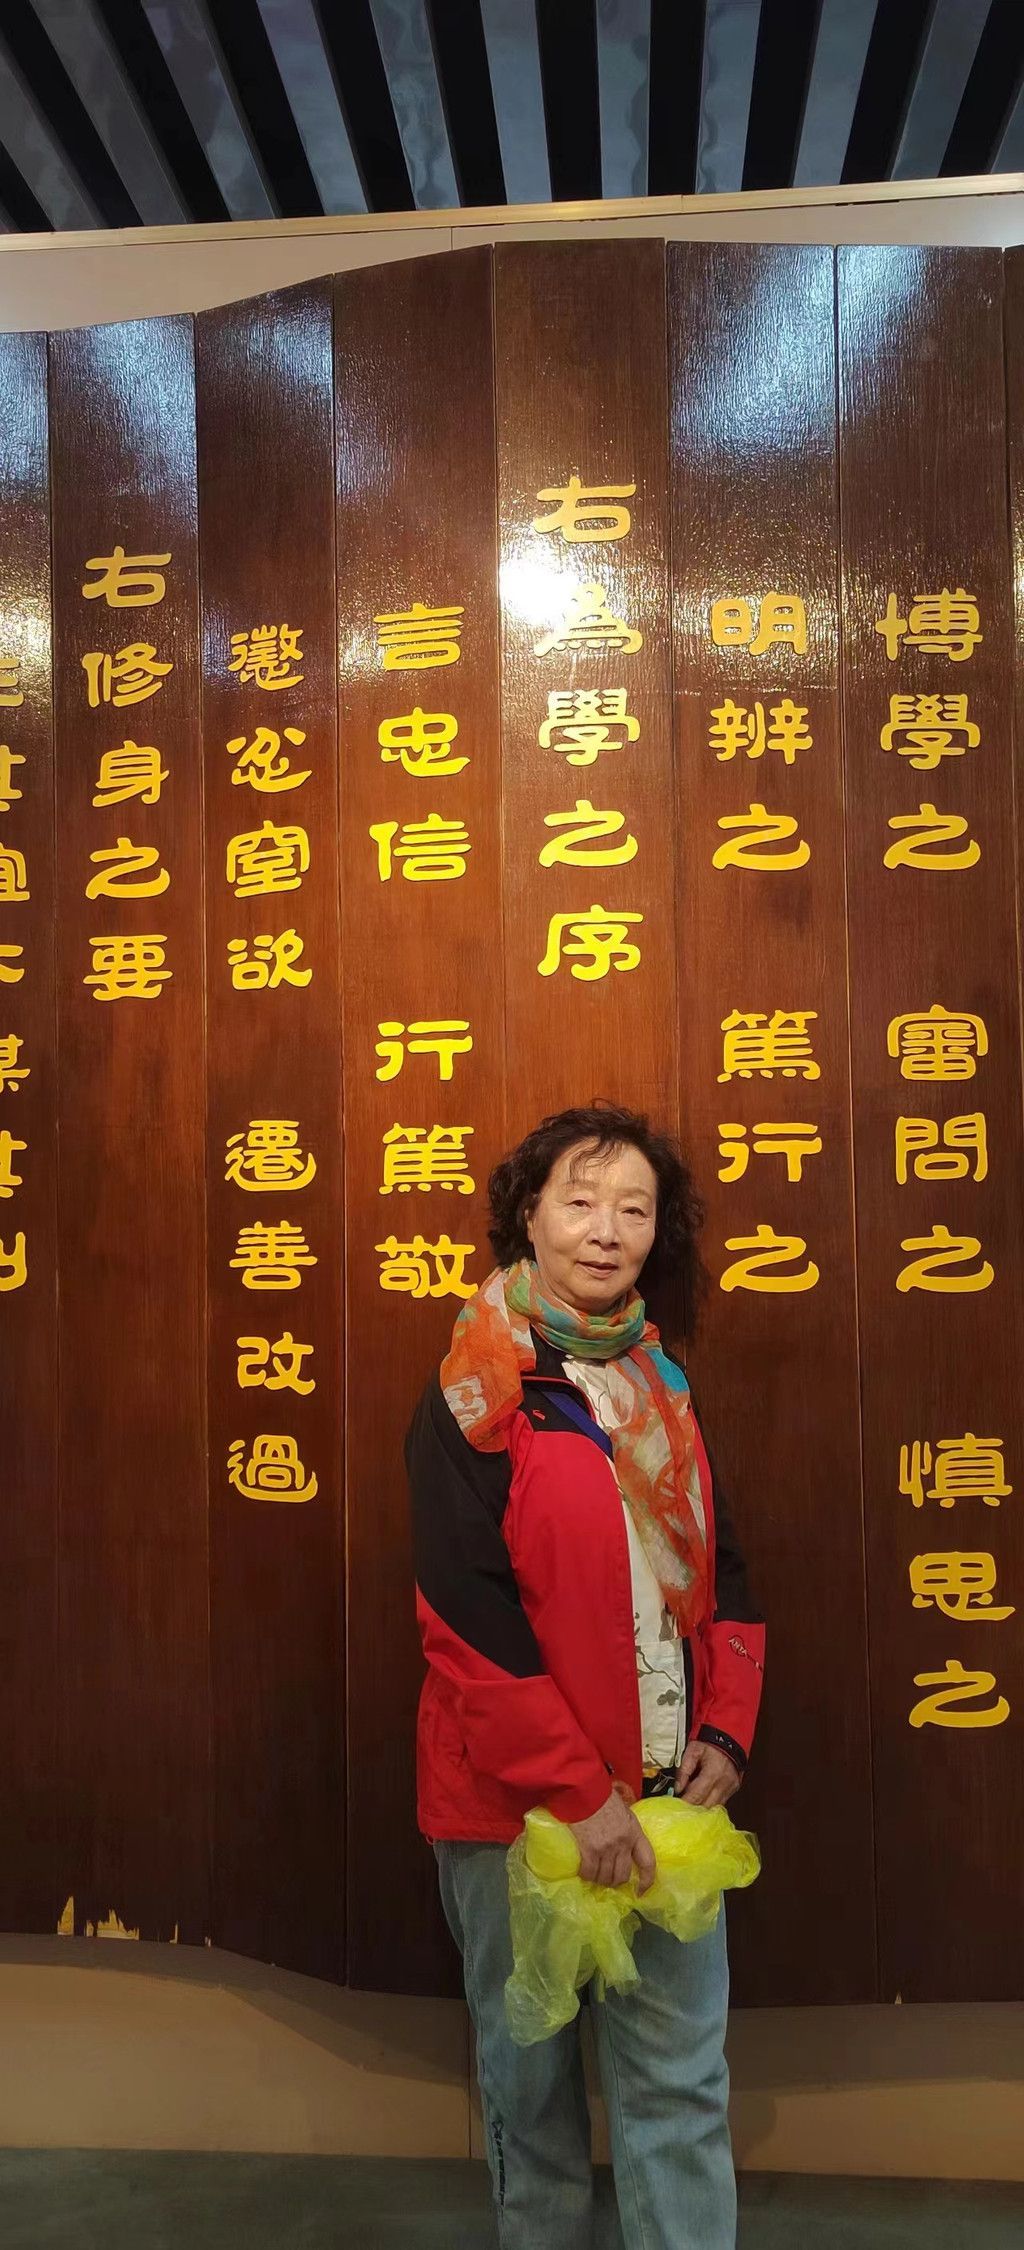 博學之 審問之 慎思之
明辨之 篤行之
右為學之序
言忠信 行篤敬
懲忿窒欲 遷善改過
右修身之要
其宜不謀其